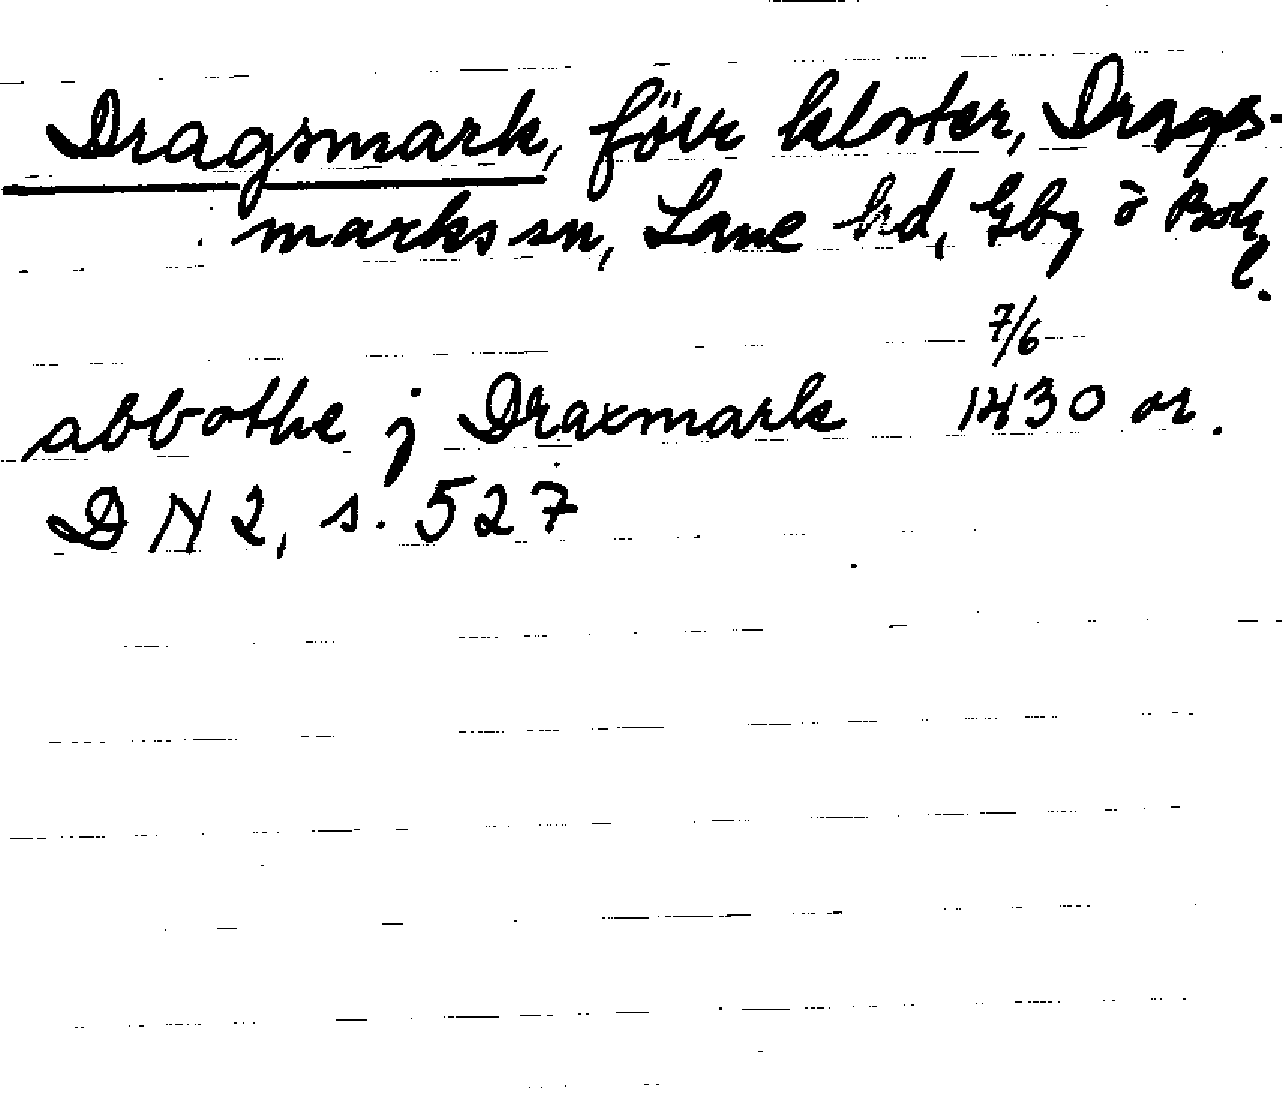 Dragsmark, förr kloster, Drags-
marks sn, Lane hd, Gbg o Boh
l.
7/6
abbothe j Draxmark 1430 or.
DN 2, s. 527